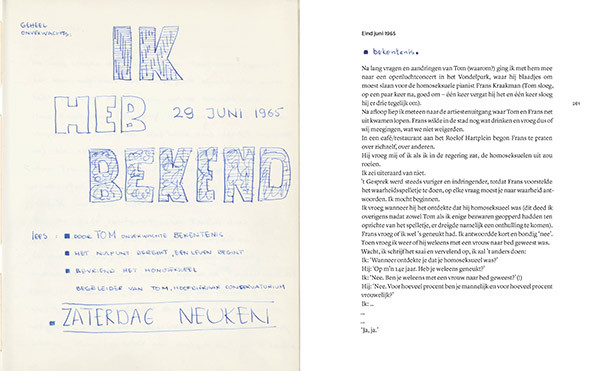 GEHEEL
ONVERWACHTS:
IK
HEB
29 JUNI 1965
BEKEND
LEES:
DOOR TOM ONVERWACHTE BEKENTENIS
HET NULPUNT BEREIKT, EEN LEVEN BEGINT
BEVRIEND HET HOMOSEKSUEEL
BEGELEIDER VAN TOM, HOOFDLERAAR CONSERVATORIUM
ZATERDAG NEUKEN
Eind juni 1965
bekentenis.
Na lang vragen en aandringen van Tom (waarom?) ging ik met hem mee
naar een openluchtconcert in het Vondelpark, waar hij blaadjes om
moest slaan voor de homoseksuele pianist Frans Kraakman (Tom sloeg,
op een paar keer na, goed om – één keer vergat hij het en één keer sloeg
hij er drie tegelijk om).
Na afloop liep ik meteen naar de artiestenuitgang waar Tom en Frans net
uit kwamen lopen. Frans wilde in de stad nog wat drinken en vroeg dus of
wij meegingen, wat we niet weigerden.
In een café/restaurant aan het Roelof Hartplein begon Frans te praten
over zichzelf, over anderen.
Hij vroeg mij of ik als ik in de regering zat, de homoseksuelen uit zou
roeien.
Ik zei uiteraard van niet.
't Gesprek werd steeds vuriger en indringender, totdat Frans voorstelde
het waarheidsspelletje te doen, op elke vraag moest je naar waarheid ant-
woorden. Ik mocht beginnen.
Ik vroeg wanneer hij het ontdekte dat hij homoseksueel was (dit deed ik
overigens nadat zowel Tom als ik enige bezwaren geopperd hadden ten
opzichte van het spelletje, er dreigde namelijk een onthulling te komen).
Frans vroeg of ik wel 's geneukt had. Ik antwoordde kort en bondig 'nee'.
Toen vroeg ik weer of hij weleens met een vrouw naar bed geweest was.
Wacht, ik schrijf het saai en vervelend op, ik zal 't anders doen:
Ik: 'Wanneer ontdekte je dat je homoseksueel was?'
Hij: 'Op m'n 14e jaar. Heb je weleens geneukt?'
Ik: 'Nee. Ben je weleens met een vrouw naar bed geweest?' (!)
Hij: 'Nee. Voor hoeveel procent ben je mannelijk en voor hoeveel procent
vrouwelijk?'
Ik: ...
...
...
'Ja, ja.'